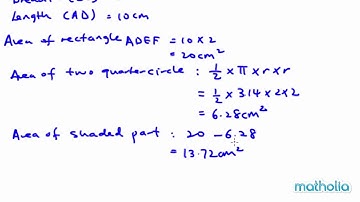 Length (AD) = 10cm
Area of rectangle ADEF = 10 x 2
= 20cm²
Area of two quartercircle : 1/2 x π x r x r
= 1/2 x 3.14 x 2 x 2
= 6.28cm²
Area of shaded part : 20 - 6.28
= 13.72cm²
matholia